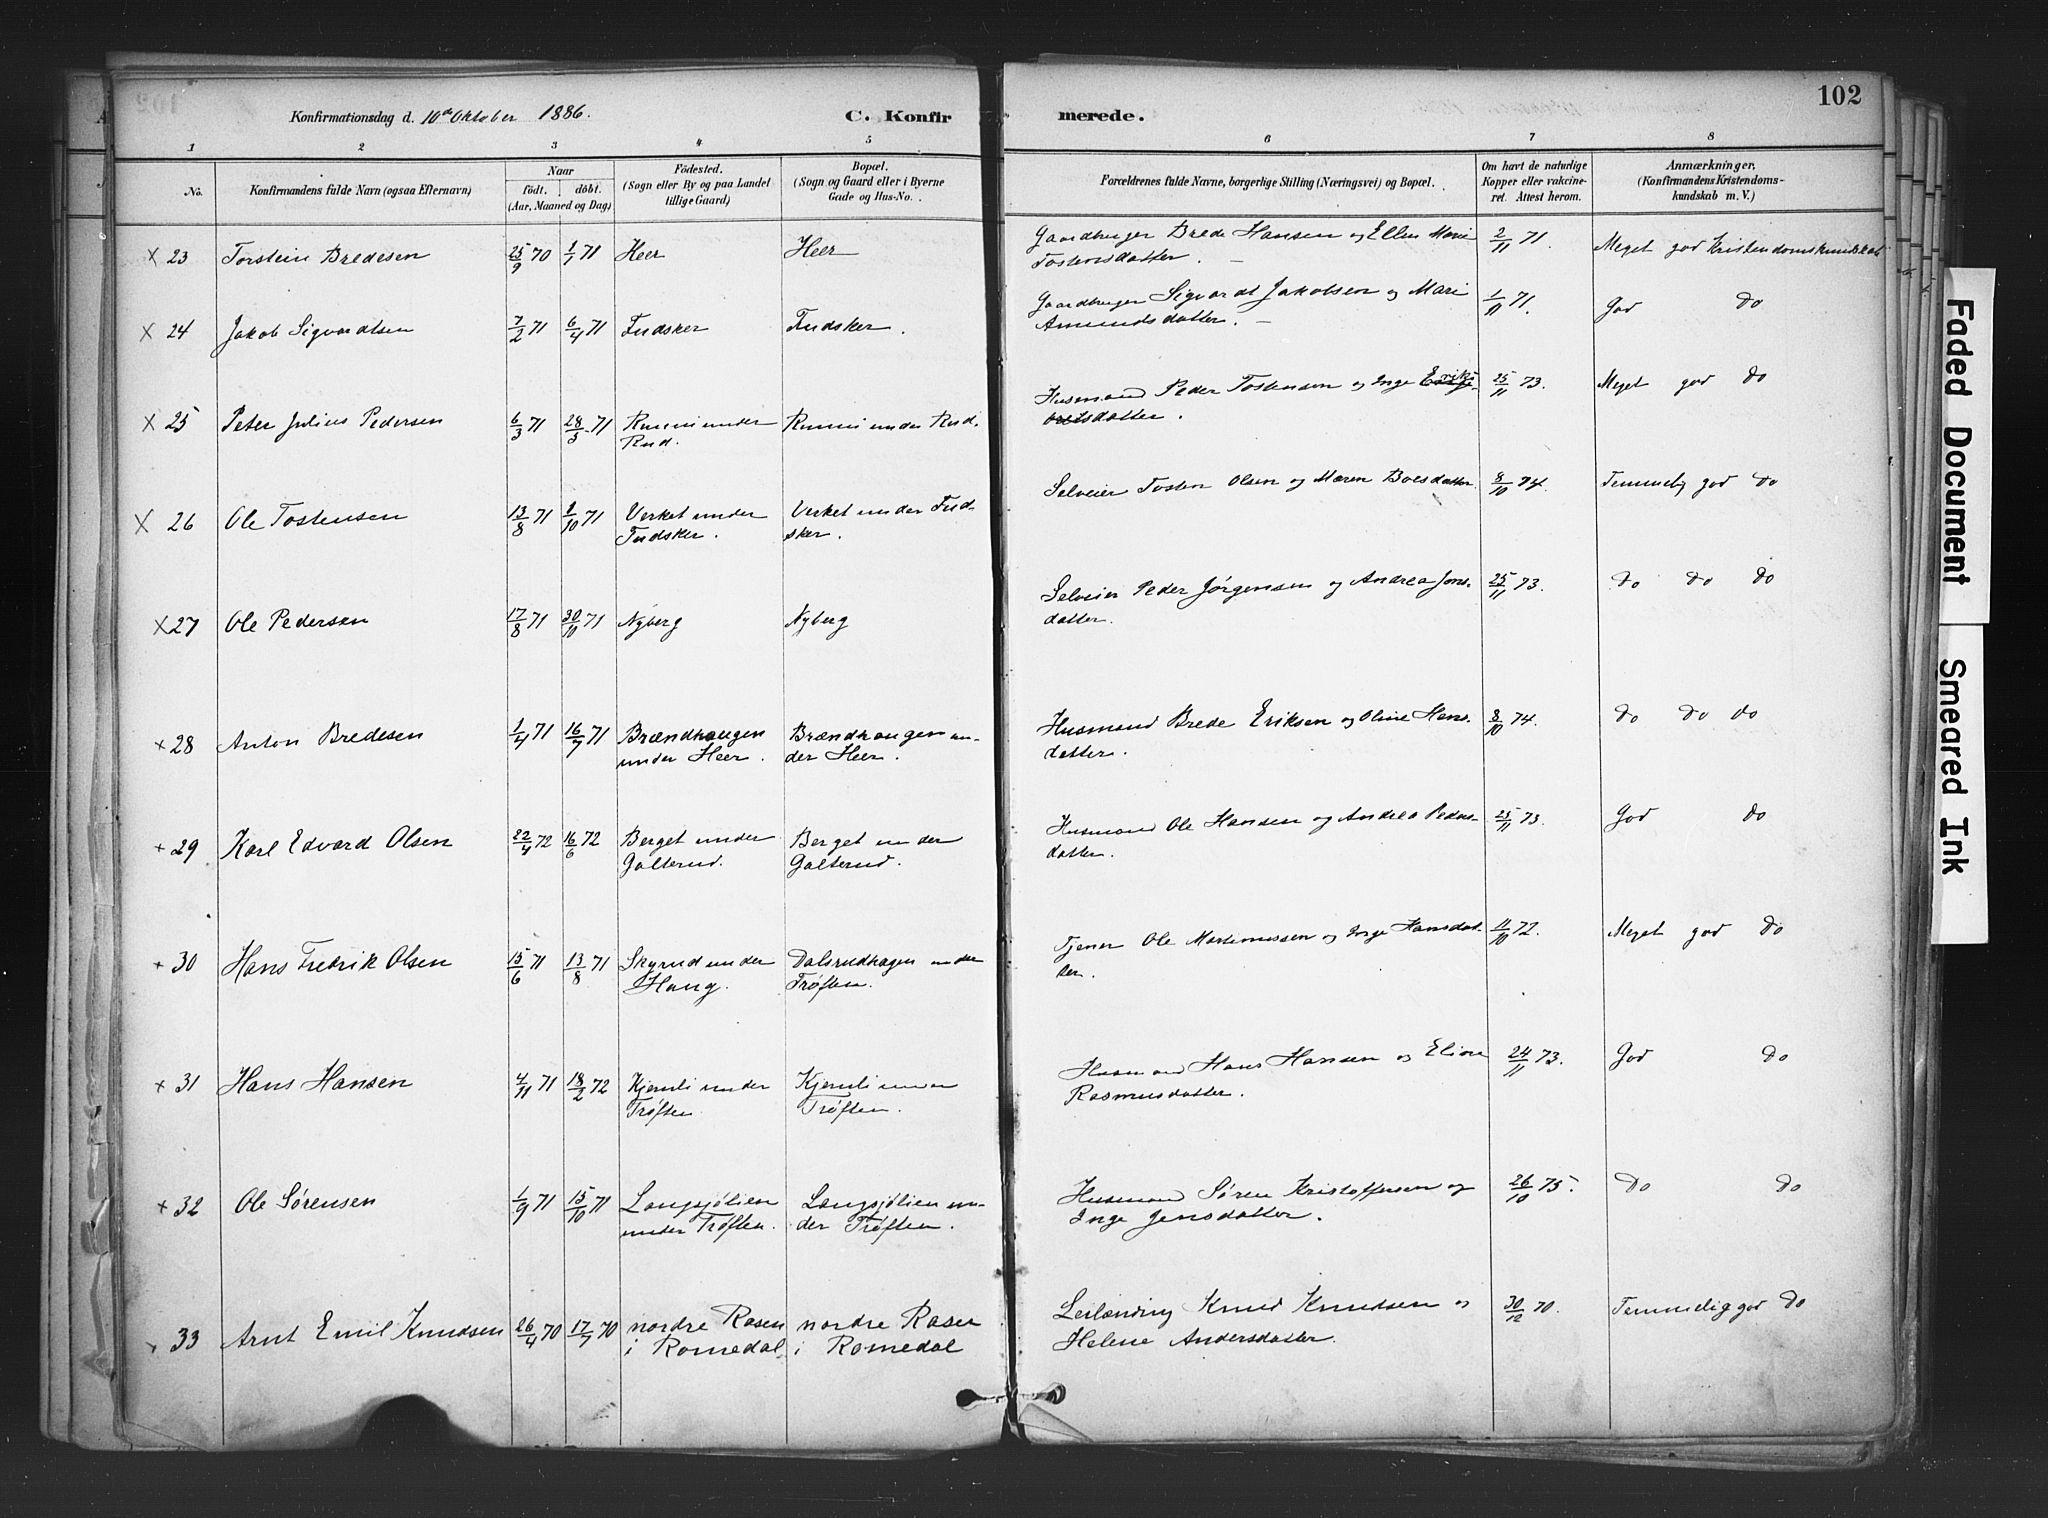 102
Konfirmationsdag d. 10de Oktober 1886.
C. Konfirmerede.
1 2 3 4 5 6 7 8
No. Konfirmandens fulde Navn (ogsaa Efternavn) Naar födt. döbt. (Aar, Maaned og Dag) Födested. (Sogn eller By og paa Landet tillige Gaard) Bopæl. (Sogn og Gaard eller i Byerne Gade og Hus-No. Forældrenes fulde Navne, borgerlige Stilling (Næringsvei) og Bopæl. Om havt de naturlige Kopper eller vakcineret. Attest herom. Anmærkninger. (Konfirmandens Kristendomskundskab m. V.)
x 23 Torstein Bredesen 25/9 70 1/1 71 Heer Heer Gaardbruger Brede Hansen og Ellen Marie Tostensdatter. 2/11 71. Meget god Kristendomskundskab
x 24 Jakob Sigvardtsen 7/2 71 6/4 71 Fudsker Fudsker. Gaardbruger Sigvardt Jakobsen og Mari Amundsdatter. 1/11 71. God Do
x 25 Peter Julius Pedersen 6/3 71 28/5 71 Runni under Rud. Runni under Rud. Husmand Peder Tostensen og Inge Eriksdatter. 25/11 73. Meget god Do
x 26 Ole Tostensen 13/8 71 8/10 71 Verket under Fudsker. Verket under Fudsker. Selveier Tosten Olsen og Maren Boesdatter 8/10 74. Temmelig god Do
x 27 Ole Pedersen 17/8 71 30/10 71 Nyberg Nyberg Selveier Peder Jørgensen og Andrea Jonsdatter. 25/11 73. Do Do Do
x 28 Anton Bredesen 1/4 71 16/7 71 Brændhaugen under Heer. Brændhaugen under Heer. Husmand Brede Eriksen og Oline Hansdatter. 8/10 74. Do Do Do
+ 29 Karl Edvard Olsen 22/4 72 16/6 72 Berget under Galterud. Berget under Galterud. Husmand Ole Hansen og Andrea Pedersdatter. 25/11 73. God Do
+ 30 Hans Fredrik Olsen 15/6 71 13/8 71 Skyrud under Haug. Dalsrudhagen under Trøften. Tjener Ole Martinussen og Inge Hansdatter. 11/10 72. Meget god Do
+ 31 Hans Hansen 4/11 71 18/2 72 Kjernli under Trøften Kjernli under Trøften. Husmand Hans Hansen og Eline Rasmusdatter. 24/11 73. God Do
+ 32 Ole Sørensen 1/9 71 15/10 71 Langsjølien under Trøften. Langsjølien under Trøften. Husmand Søren Kristoffersen og Inge Jensdatter. 26/10 75. Do Do
33 Arnt Emil Knudsen 26/4 70 17/7 70 nordre Rosen i Romedal nordre Rosen i Romedal Leilænding Knud Knudsen og Helene Andersdatter. 30/12 70. Temmelig god Do
Faded Document
Smeared Ink